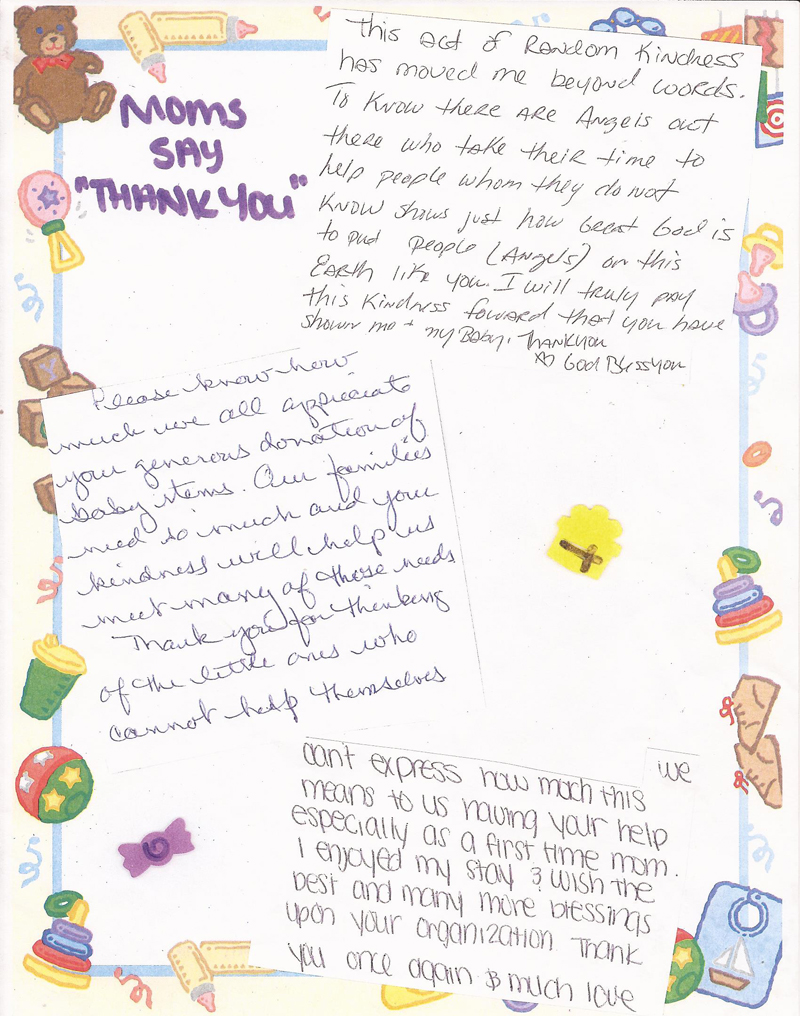 Moms
SAY
"THANK YOU"
This act of Random Kindness
has moved me beyond words.
To Know there are Angels out
there who take their time to
help people whom they do not
Know shows just how Great God is
to put people (Angels) on this
Earth like you. I will truly pay
this Kindness foward that you have
shown me + my Baby. Thankyou
God Bless you
Please know how
much we all appreciate
your generous donation of
baby items. Our families
need so much and your
kindness will help us
meet many of those needs
Thank you for thinking
of the little ones who
cannot help themselves
we
cant express how much this
means to us having your help
especially as a first time mom.
I enjoyed my stay & wish the
best and many more blessings
upon your organization Thank
you once again & much love